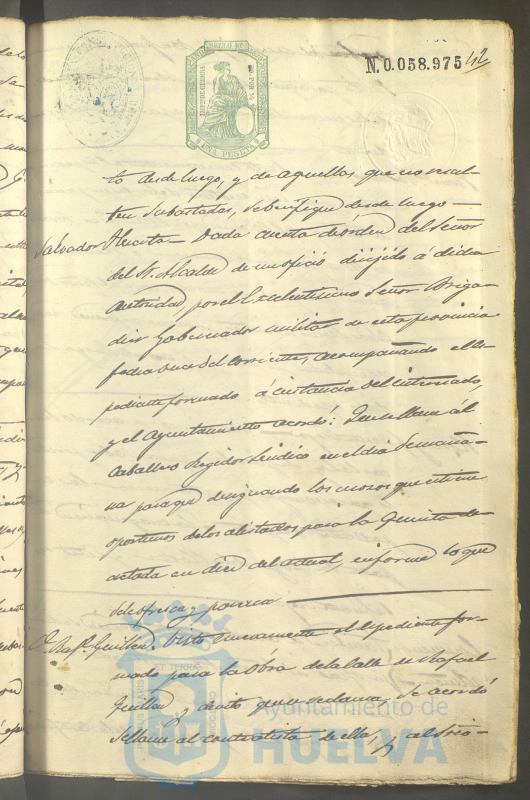 N. 0.058.975 42
UNA PESETA
to desde luego, y de aquellas que no resul-
ten subastadas, se verifique desde luego —
Salvador Huerta — Dada cuenta de órden del Señor
del Sr. Alcalde de un oficio dirijido á dicha
autoridad por el Excelentísimo Señor Briga-
dier Gobernador militar de esta provincia
fecha once del corriente, acompañando el es-
pediente formado á instancia del interesado,
y el Ayuntamiento acordó: Que se llame al
Caballero Regidor Sindico en el dia de maña-
na para que designando los mozos que estime
oportunos de los alistados para la Quinta de-
cretada en diez del actual, informe lo que
se le ofrezca y parezca
D. Raf.l Guillen. Visto nuevamente el espediente for-
mado para la Obra de la Calle de Rafael
Guillen y visto que se reclama, se acordó
se llame al contratista de ella, y al
Ayuntamiento de
HUELVA